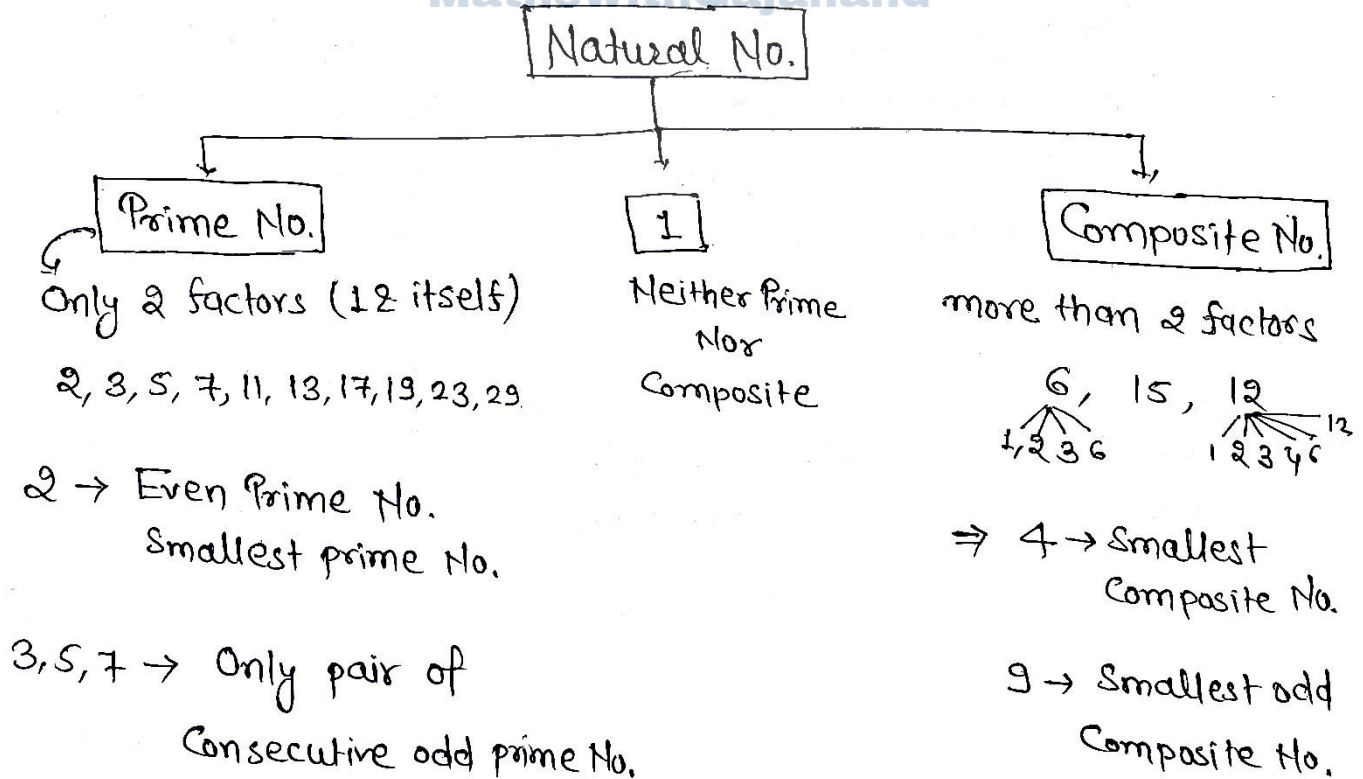 Natural No.
Prime No.
Only 2 factors (1 & itself)
2, 3, 5, 7, 11, 13, 17, 19, 23, 29
2 → Even Prime No.
Smallest prime No.
3, 5, 7 → Only pair of
Consecutive odd prime No.
1
Neither Prime
Nor
Composite
Composite No.
more than 2 factors
6, 15, 12
1, 2 3 6
1 2 3 4 6 12
⇒ 4 → Smallest
Composite No.
9 → Smallest odd
Composite No.